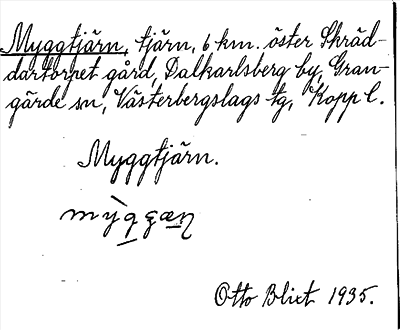 Myggtjärn, tjärn, 6 km. öster Skräd-
dartorpet gård, Dalkarlsberg by, Gran-
gärde sn, Västerbergslags tg, Kopp l.
Myggtjärn.
Otto Blixt 1935.